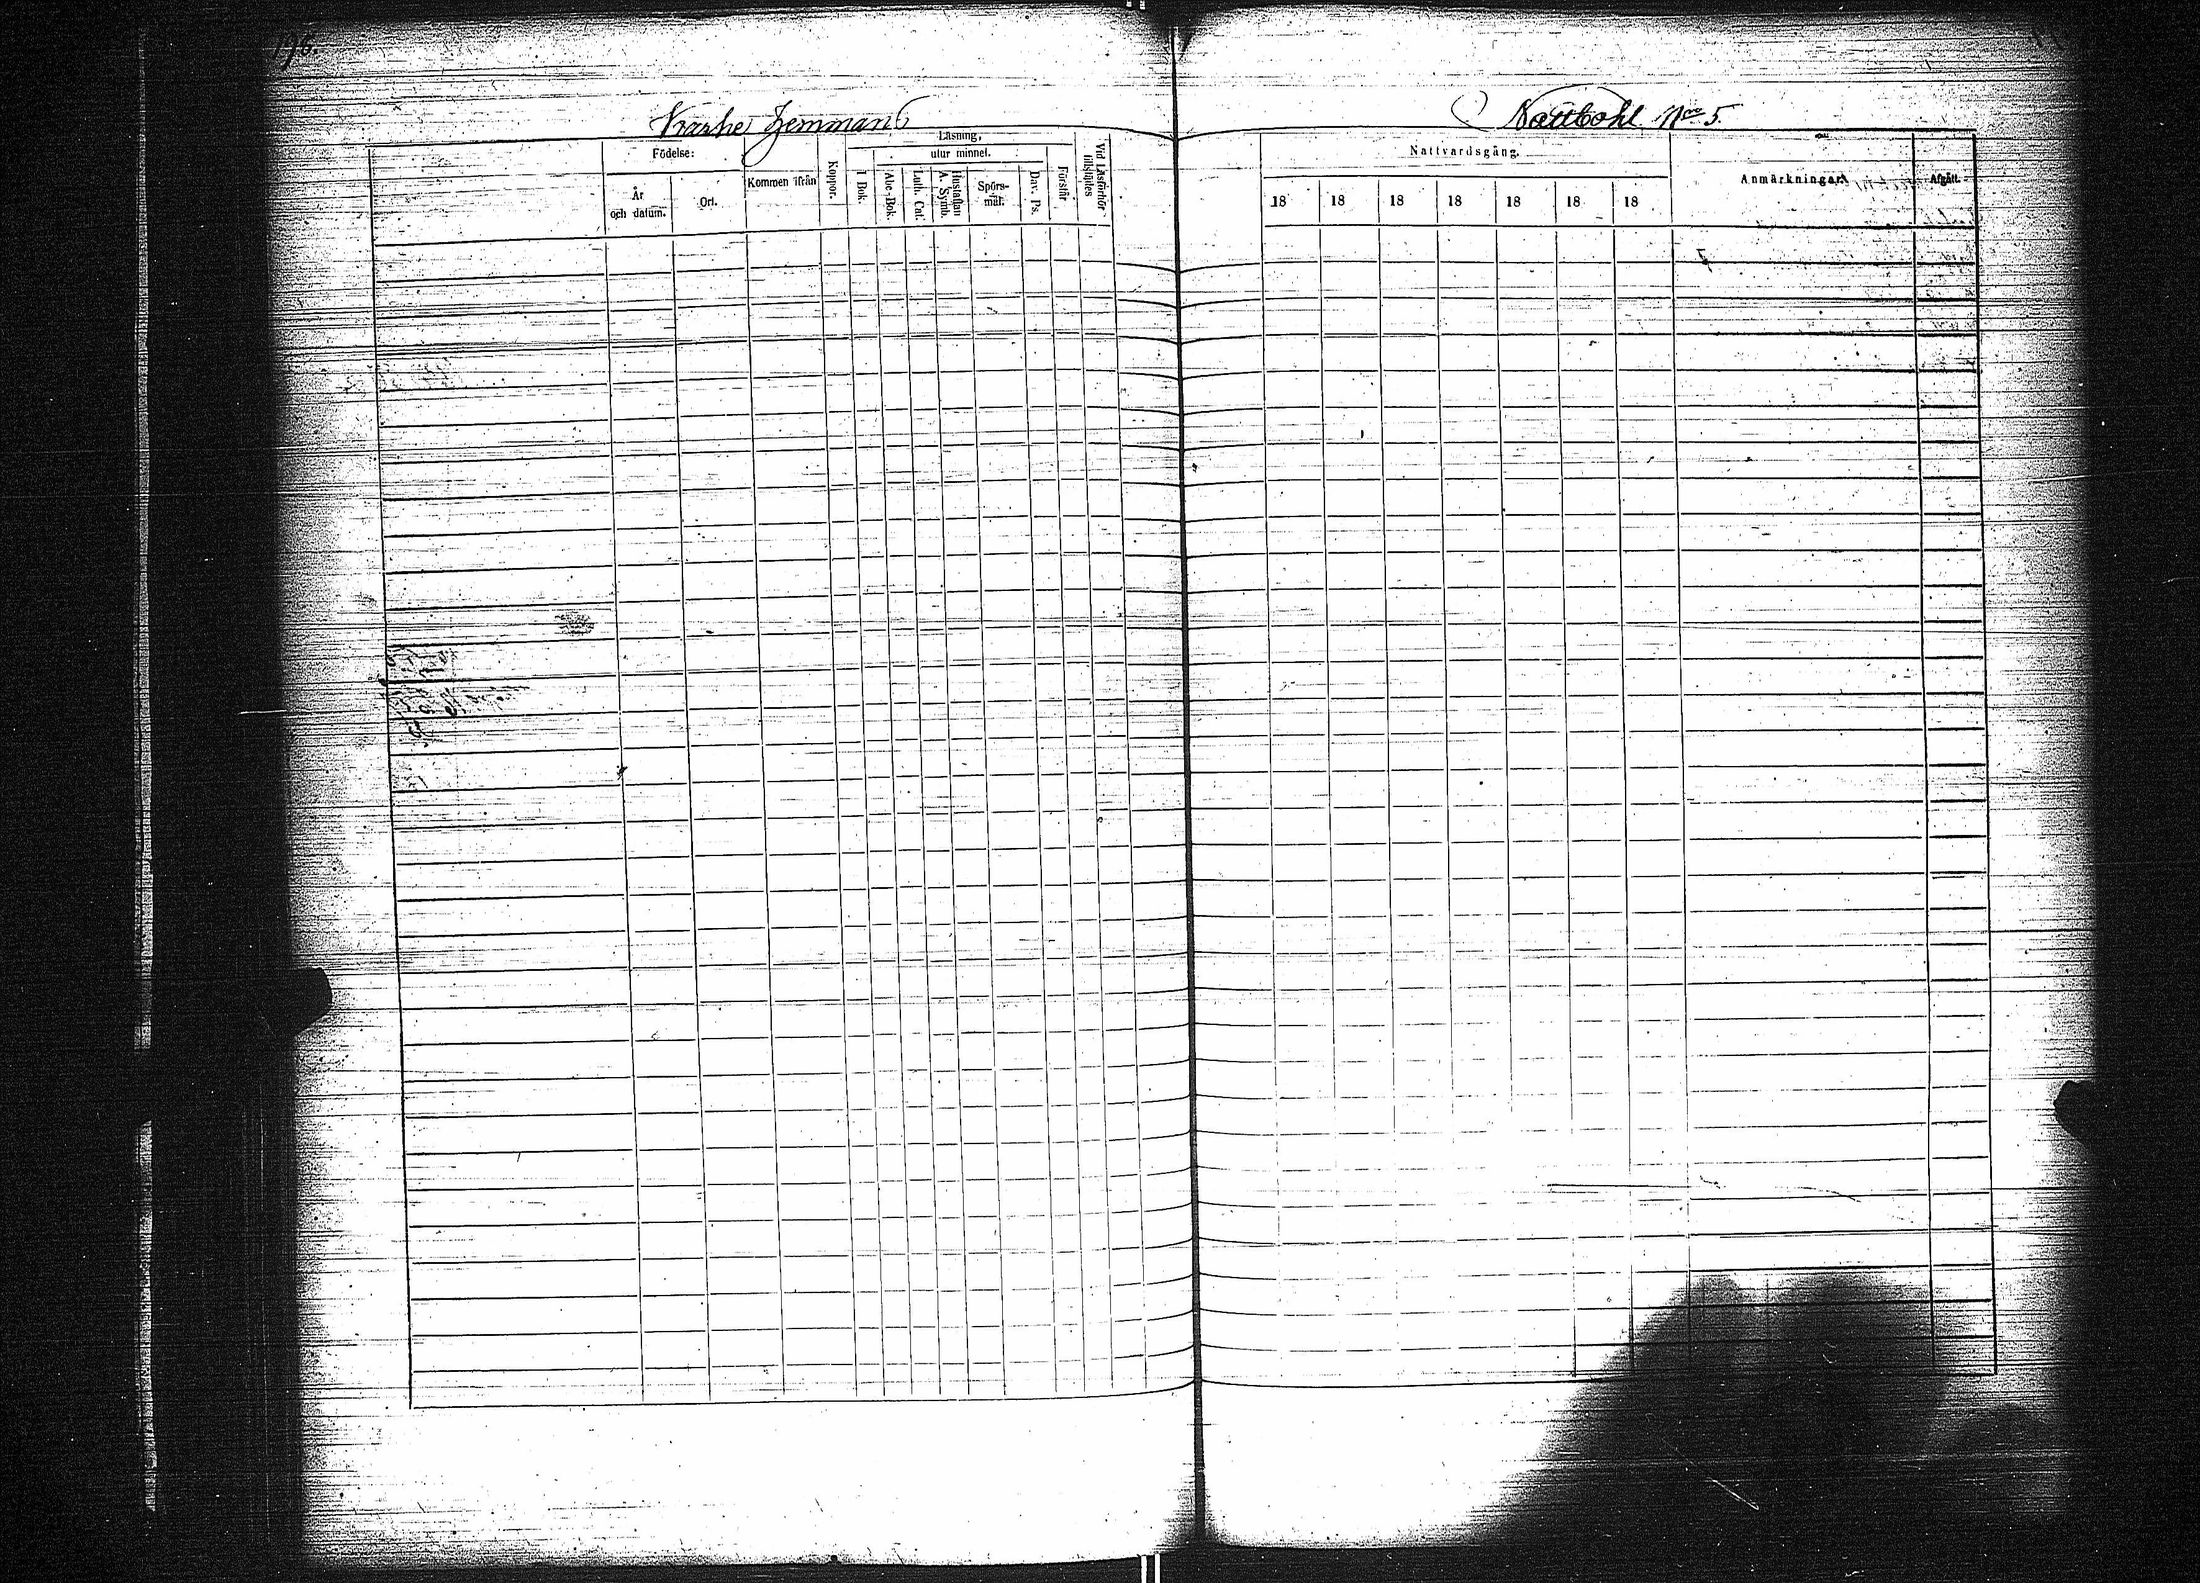 196.
Hemman
Nattbohl Nro 5.
Födelse:
År
och datum.
Ort.
Kommen ifrån
Koppor.
Läsning,
utur minnet.
I Bok.
Abc-Bok.
Luth. Cat.
Hustaflan
A. Symb.
Spörs-
mål.
Dav. Ps.
Förstår
Vid Läsförhör
tillstädes
Nattvardsgång.
18 18 18 18 18 18 18
Anmärkningar.
Afgått.